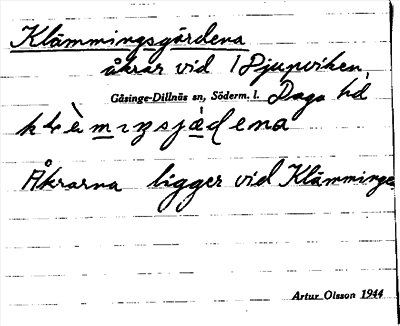 Klämmingsgärdena
åkrar vid Djupviken,
Gåsinge-Dillnäs sn, Söderm. l. Daga hd
Åkrarna ligger vid Klämmingen
Artur Olsson 1944